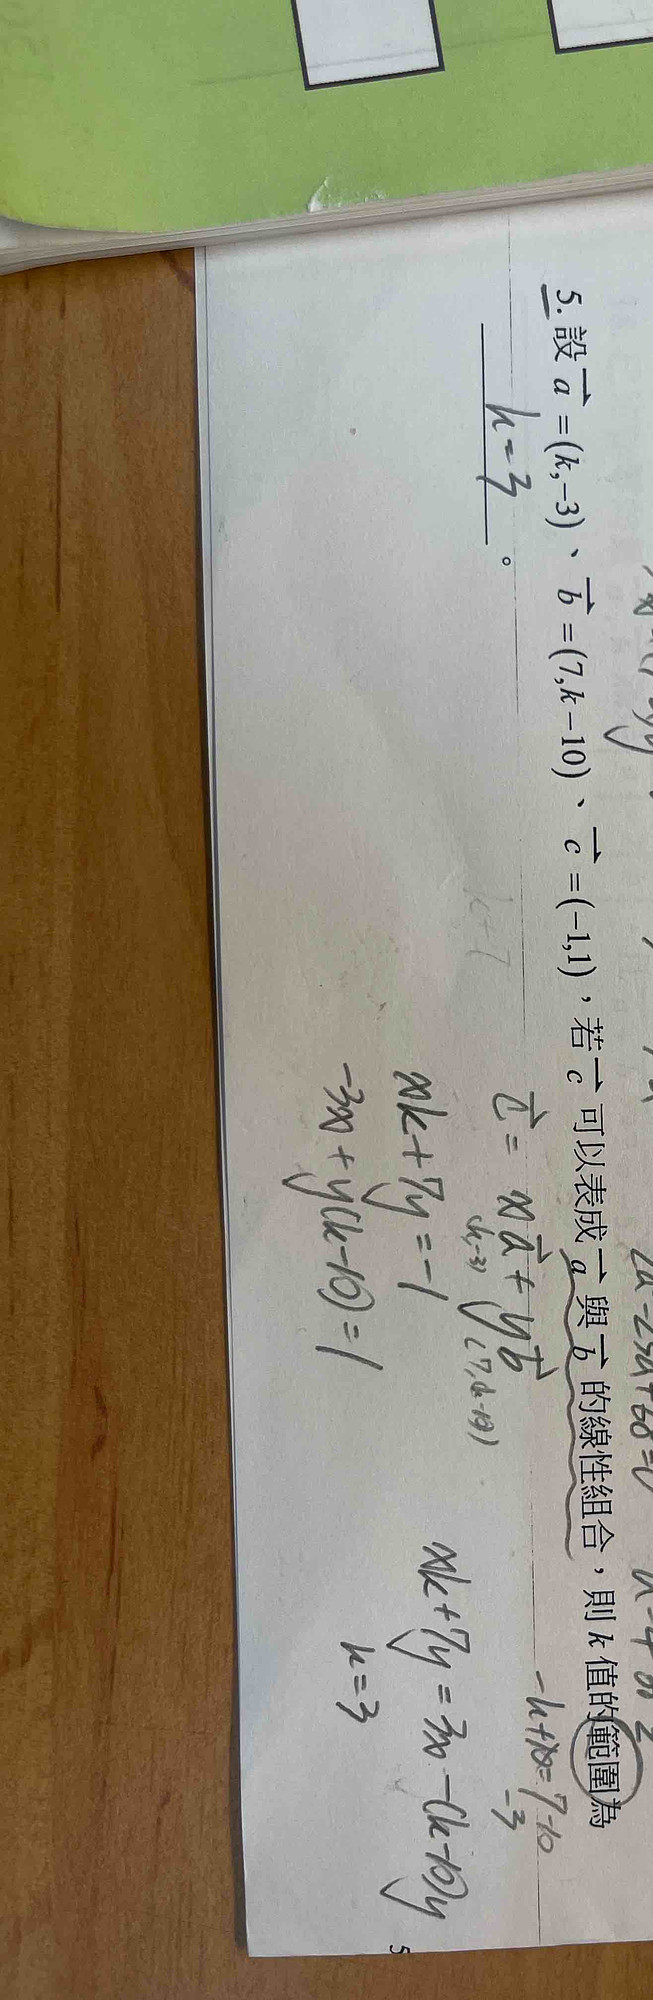 5. 設 a = (k, −3)、b = (7, k − 10)、c = (−1, 1)，若 c 可以表成 a 與 b 的線性組合，則 k 值的範圍為
k = 3 。
-k+10 = 7-10
-3
c = xa + yb
(k,-3) (7,k-10)
xk + 7y = -1
-3x + y(k-10) = 1
xk + 7y = 3x - (k-10)y
k = 3
k+7
5